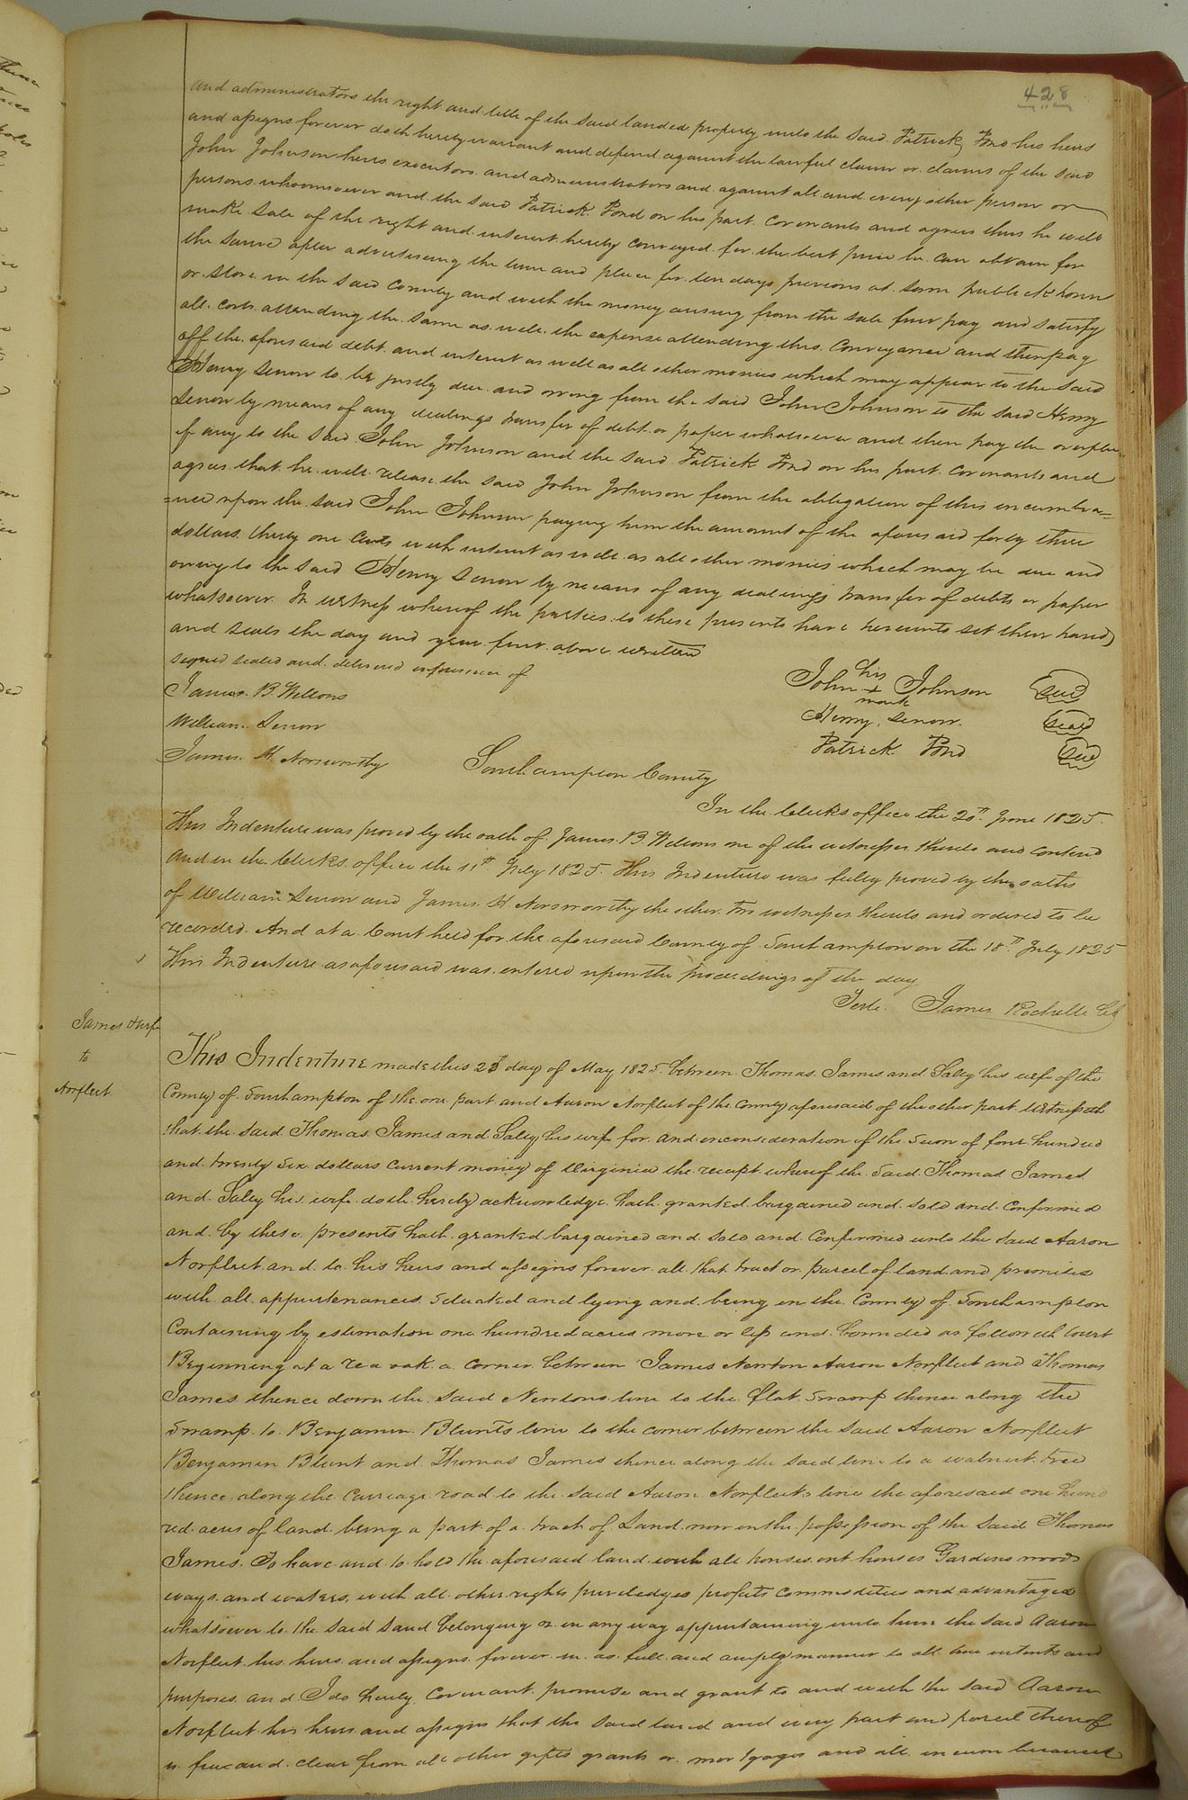 428
and administrators the right and title of the said landed property unto the said Patrick Pond his heirs
and assigns forever doth hereby warrant and defend against the lawful claim or claims of the said
John Johnson heirs executors and administrators and against all and every other person or
persons whoomsoever and the said Patrick Pond on his part covenants and agrees thus he will
make sale of the right and interest hereby conveyed for the best price he can obtain for
the same after advertising the time and place for ten days previous at some publick house
or store in the said County and with the money arising from the sale first pay and satisfy
all costs attending the same as well the expense attending this Conveyance and then pay
off the aforesaid debt and interest as well as all other monies which may appear to the said
Henry Senow to be justly due and owing from the said John Johnson to the said Henry
Senow by means of any dealings transfer of debt or paper whatsoever and then pay the overplus
if any to the said John Johnson and the said Patrick Pond on his part covenants and
agrees that he will release the said John Johnson from the obligation of this incumbra=
=nce upon the said John Johnson paying him the amount of the aforesaid forty three
dollars thirty one Cents with interest as well as all other monies which may be due and
owing to the said Henry Senow by means of any dealings transfer of debts or paper
whatsoever In witness whereof the parties to these presents have hereunto set their hands
and seals the day and year first above written
signed sealed and delivered in presence of
James B Wellons
William Senow
James H Norsworthy
his
John + Johnson seal
mark
Henry Senow seal
Patrick Pond seal
Southampton County
In the Clerks office the 20th June 1825
This Indenture was proved by the oath of James B Wellons one of the witnesses thereto and contend
and in the Clerks office the 11th July 1825 This Indenture was fully proved by the oaths
of William Senow and James H Norsworthy the other two witnesses thereto and ordered to be
recorded. And at a Court held for the aforesaid County of Southampton on the 18th July 1825
This Indenture as aforesaid was entered upon the proceedings of the day
Teste James Rochelle Clk
James & wife
to
Norfleet
This Indenture made this 23d day of May 1825 between Thomas James and Saley his wife of the
County of Southampton of the one part and Aaron Norfleet of the County aforesaid of the other part Witnesseth
that the said Thomas James and Saley his wife for and in consideration of the sum of four hundred
and twenty six dollars current money of Virginia the receipt whereof the said Thomas James
and Saley his wife doth hereby acknowledge hath granted bargained and sold and confirmed
and by these presents hath granted bargained and sold and Confirmed unto the said Aaron
Norfleet and to his heirs and assigns forever all that tract or parcel of land and premises
with all appurtenances situated and lying and being in the County of Southampton
Containing by estimation one hundred acres more or less and bounded as followeth
Beginning at a red oak a corner between James Newton Aaron Norfleet and Thomas
James thence down the said Newtons line to the flat swamp thence along the
swamp to Benjamin Blunts line to the corner between the said Aaron Norfleet
Benjamin Blunt and Thomas James thence along the said line to a walnut tree
thence along the carriage road to the said Aaron Norfleets line the aforesaid one hund
red acres of land being a part of a tract of Land now in the possession of the said Thomas
James To have and to hold the aforesaid land with all houses out houses Gardens woods
ways and waters with all other rights priviledges profits commodities and advantages
whatsoever to the said land belonging or in any way appurtaining unto him the said Aaron
Norfleet his heirs and assigns forever in as full and ample manner to all intents and
purposes and I do hereby covenant promise and grant to and with the said Aaron
Norfleet his heirs and assigns that the said land and every part and parcel thereof
is free and clear from all other gifts grants or mortgages and all